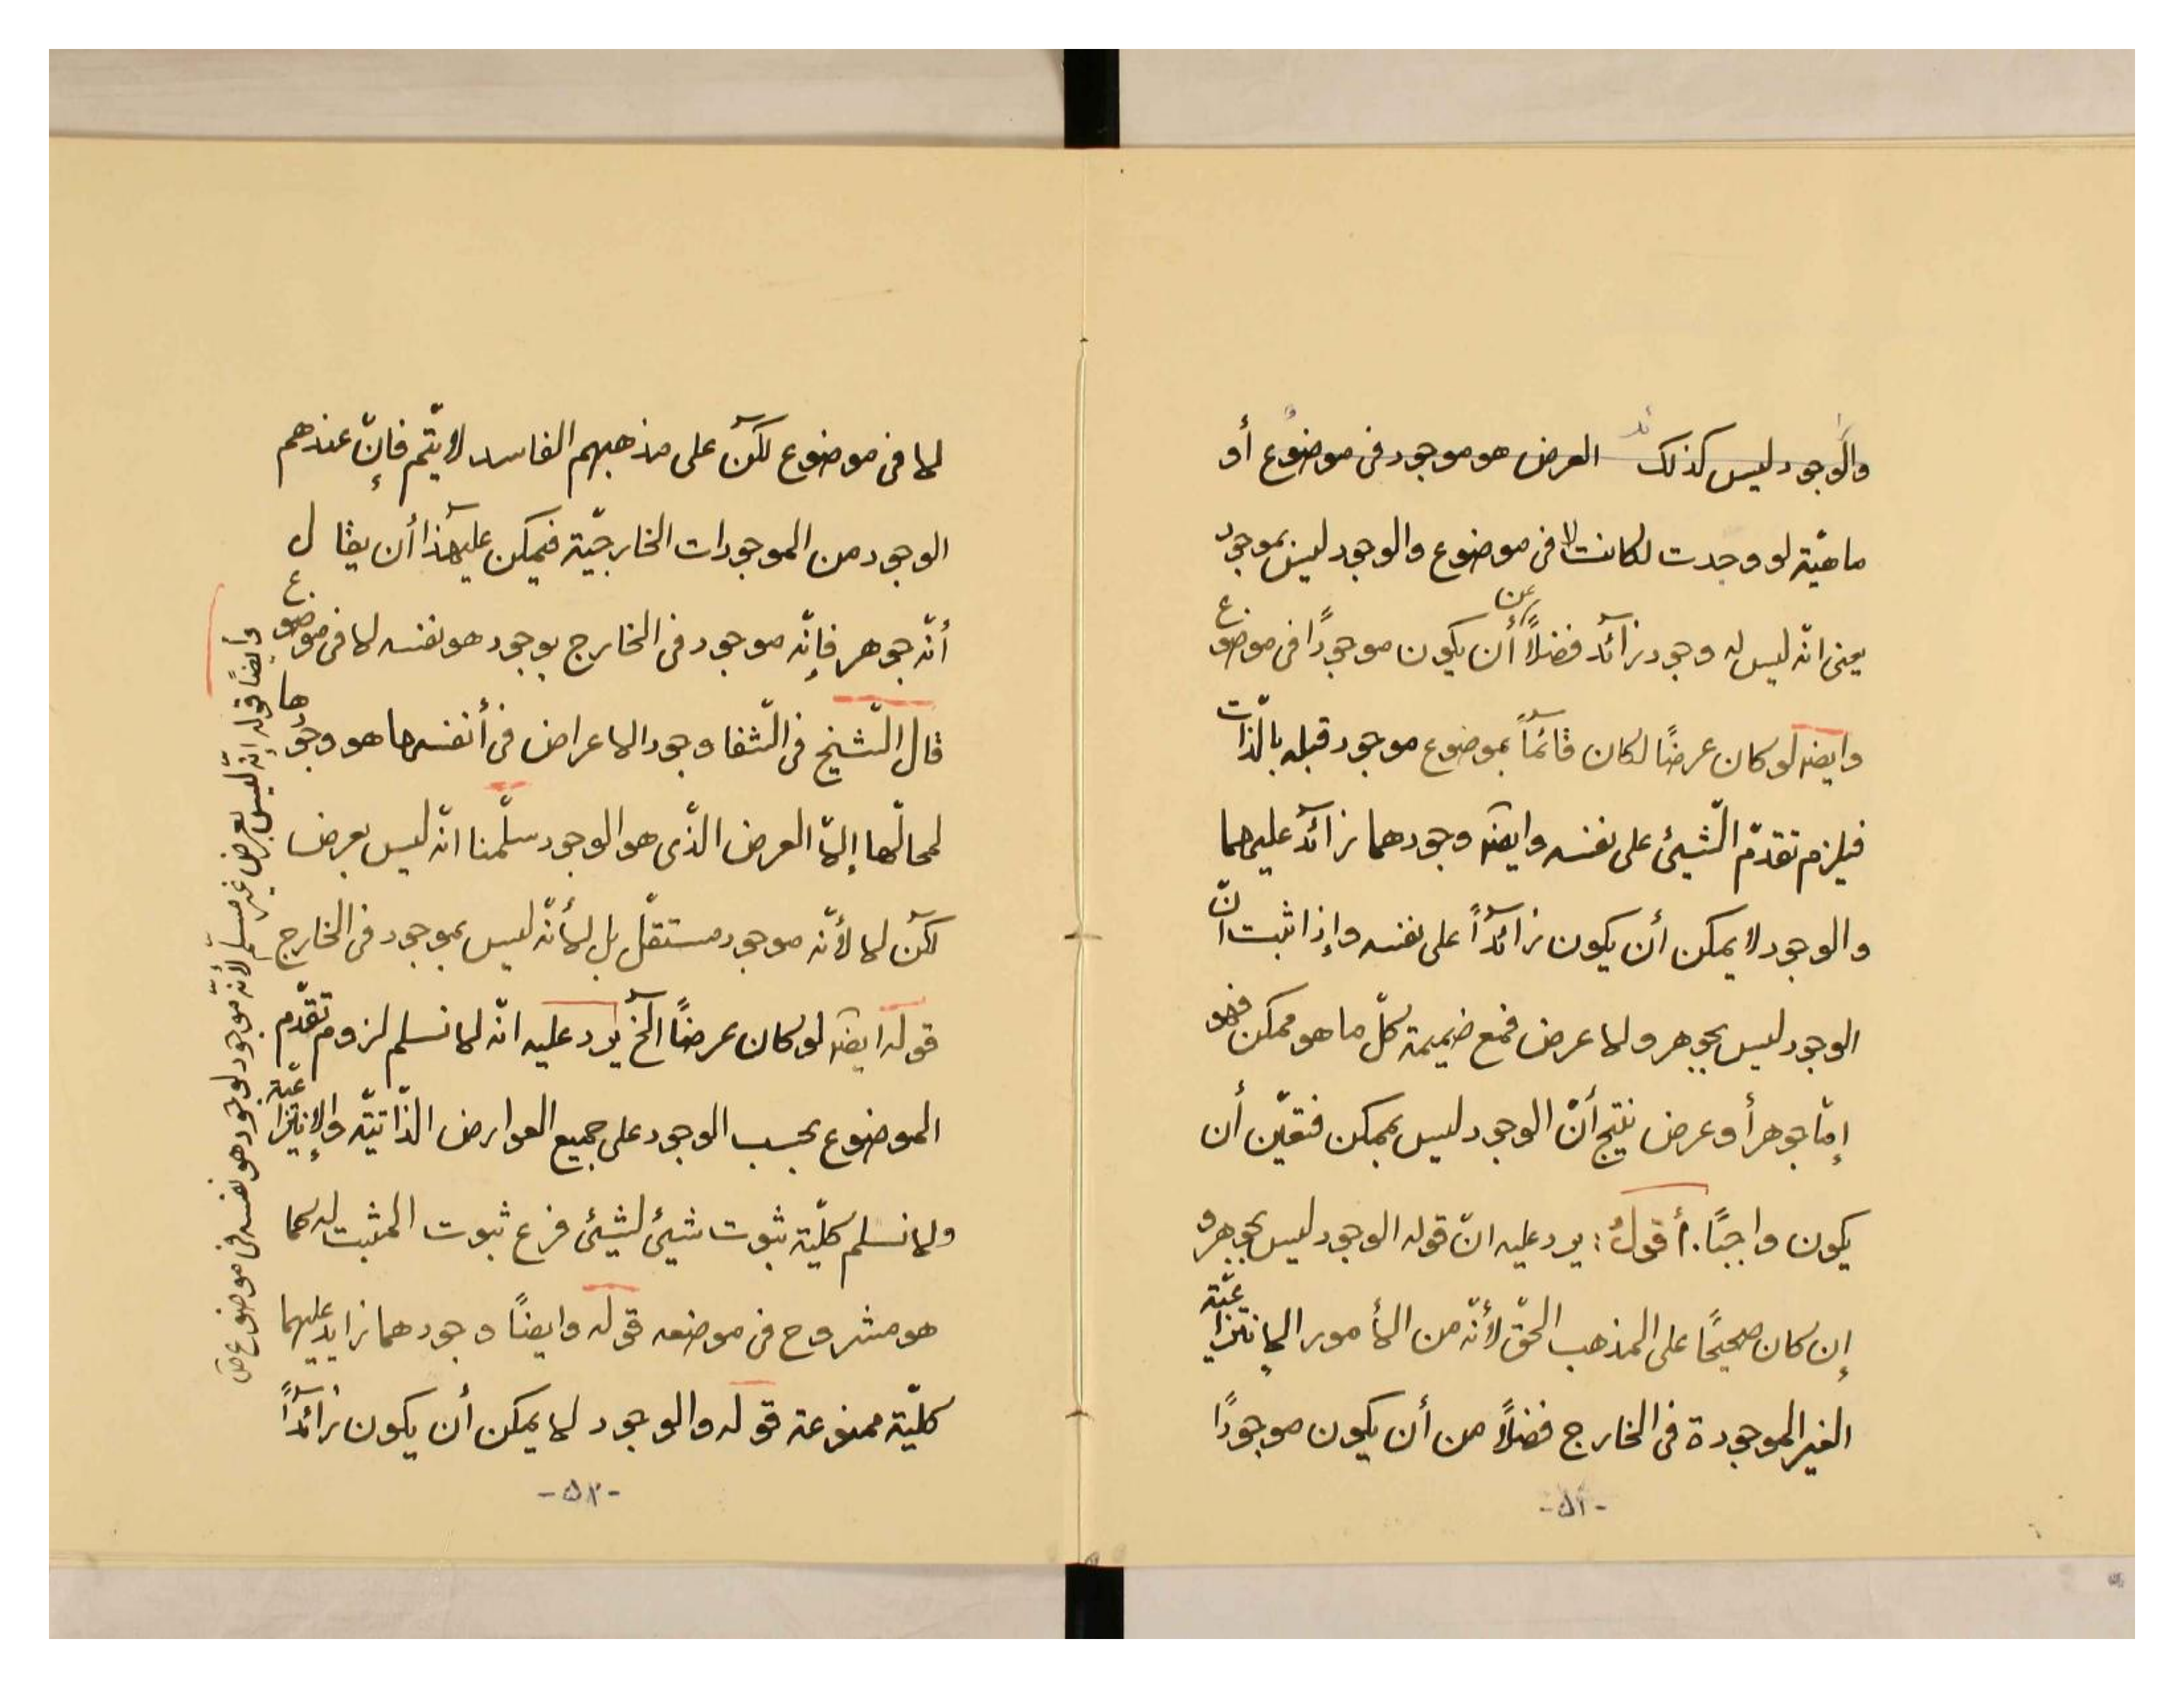 والوجود ليس كذلك العرض هو موجود فى موضوع أو
ماهيّة لو وجدت لكانت لا فى موضوع والوجود ليس بموجود
يعنى انّه ليس له وجود زآئد فضلاً عن أن يكون موجودًا فى موضوع
وايضه لو كان عرضًا لكان قآئمًا بموضوع موجود قبله بالّذات
فيلزم تقدّم الّشيئ على نفسه وايضه وجودهما زآئد عليهما
والوجود لا يمكن أن يكون زآئدًا على نفسه وإذا ثبت انّ
الوجود ليس بجوهر ولا عرض فمع ضميمة كلّ ما هو ممكن فهو
إمّا جوهر أو عرض ينتج أنّ الوجود ليس بممكن فتعيّن أن
يكون واجبًا. أقول: يرد عليه انّ قوله الوجود ليس بجوهر و
إن كان صحيحًا على المذهب الحقّ لأنّه من الأمور الإنتزاعيّة
الغير الموجودة فى الخارج فضلاً من أن يكون موجودًا
-٥١-
لا فى موضوع لكنّ على مذهبهم الفاسد لا يتّم فإنّ عندهم
الوجود من الموجودات الخارجيّة فيمكن على هذا أن يقال
أنّه جوهر فإنّه موجود فى الخارج بوجود هو نفسه لا فى موضوع
قال الّشيخ فى الّشفا وجود الاعراض فى أنفسها هو وجودها
لمحالّها إلاّ العرض الّذى هو الوجود سلّمنا انّه ليس بعرض
لكنّ لا لأنّه موجود مستقلّ بل لأنّه ليس بموجود فى الخارج
قوله ايضه لو كان عرضًا آلخ يرد عليه انّه لا نسلم لزوم تقدّم
الموضوع بحسب الوجود على جميع العوارض الذّاتيّة والإنتزاعيّة
ولا نسلم كليّة ثبوت شيئ لشيئ فرع ثبوت المثبت له كما
هو مشروح فى موضعه قوله وايضًا وجودهما زايد عليهما
كليّة ممنوعة قوله والوجود لا يمكن أن يكون زآئدًا
-٥٢-
وأيضًا قوله إنّه ليس بعرض غير مسلّم لأنّه موجود لوجود هو نفسه فى موضوع